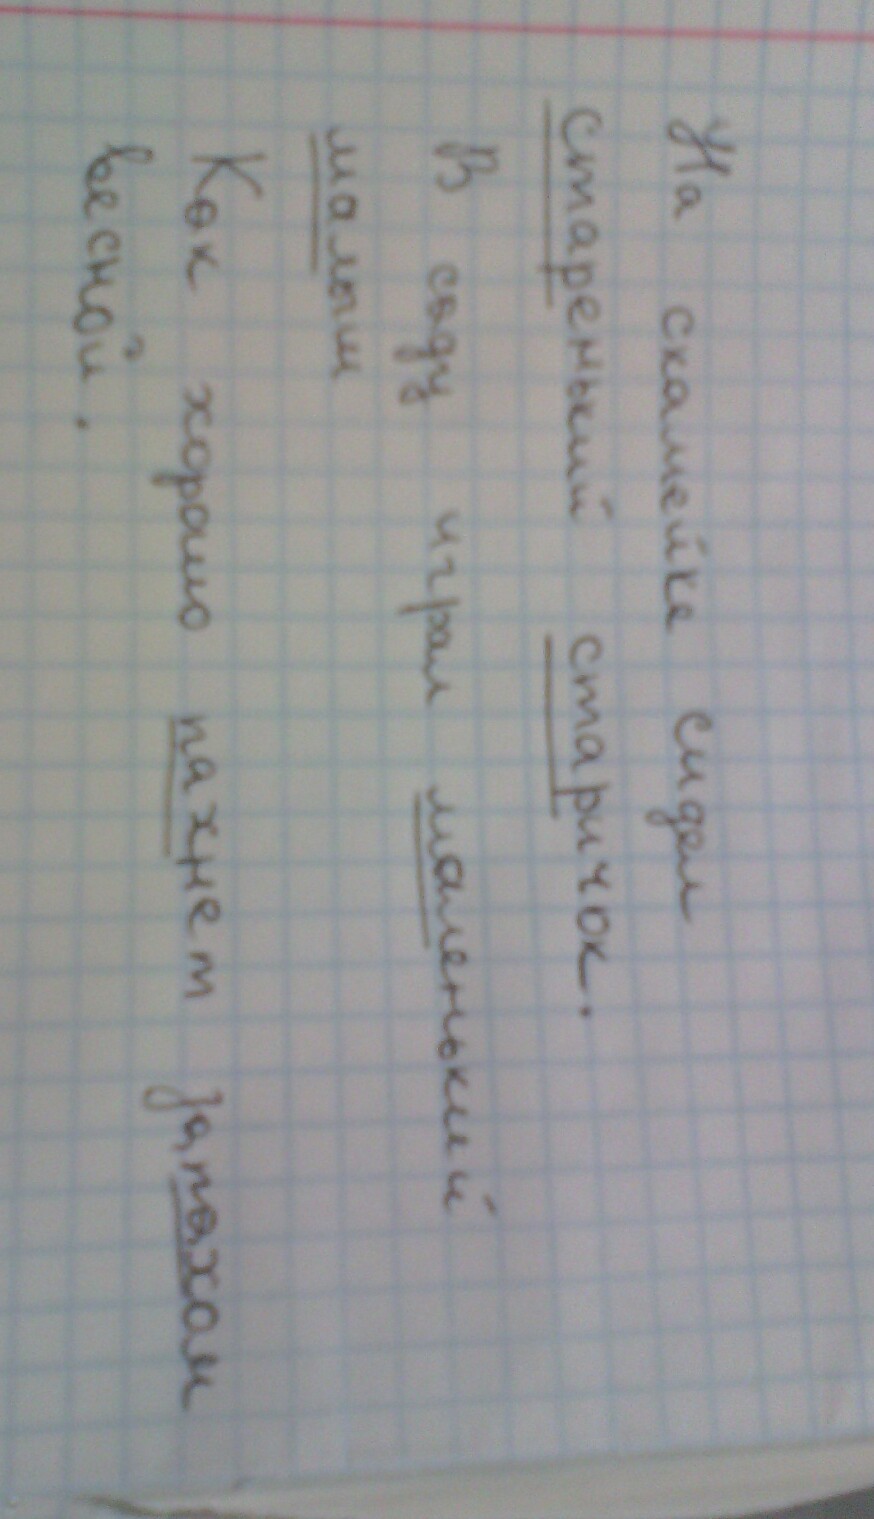 На скамейке сидел
старенький старичок.
В саду играл маленький
малыш
Как хорошо пахнет запахом
весной.